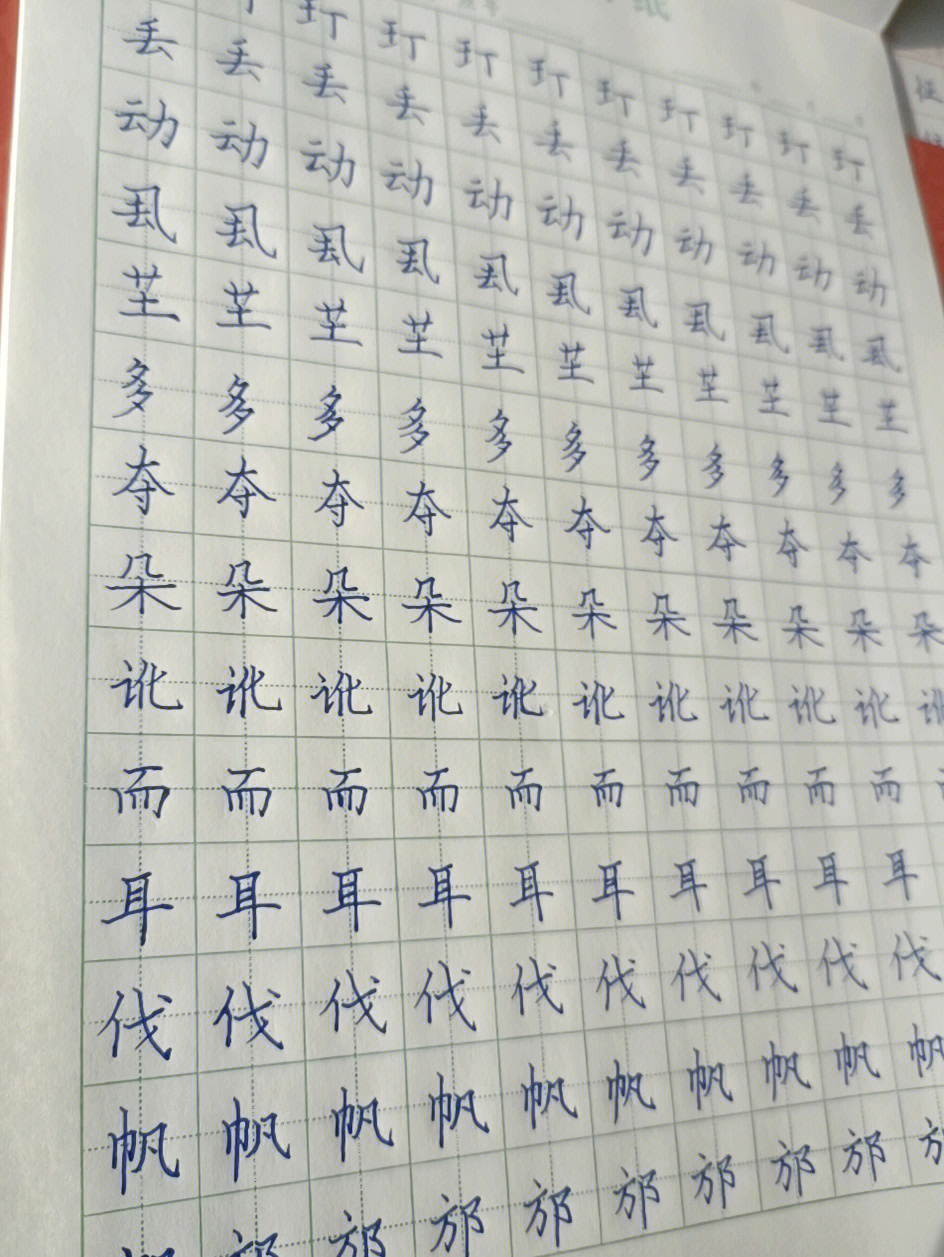 玎玎玎玎玎玎玎玎玎
丢丢丢丢丢丢丢丢丢丢丢
动动动动动动动动动动动
芏芏芏芏芏芏芏芏芏芏芏
多多多多多多多多多多多
夺夺夺夺夺夺夺夺夺夺夺
朵朵朵朵朵朵朵朵朵朵朵
讹讹讹讹讹讹讹讹讹讹讹
而而而而而而而而而而
耳耳耳耳耳耳耳耳耳耳
伐伐伐伐伐伐伐伐伐伐
帆帆帆帆帆帆帆帆帆帆
邡邡邡邡邡邡邡邡邡